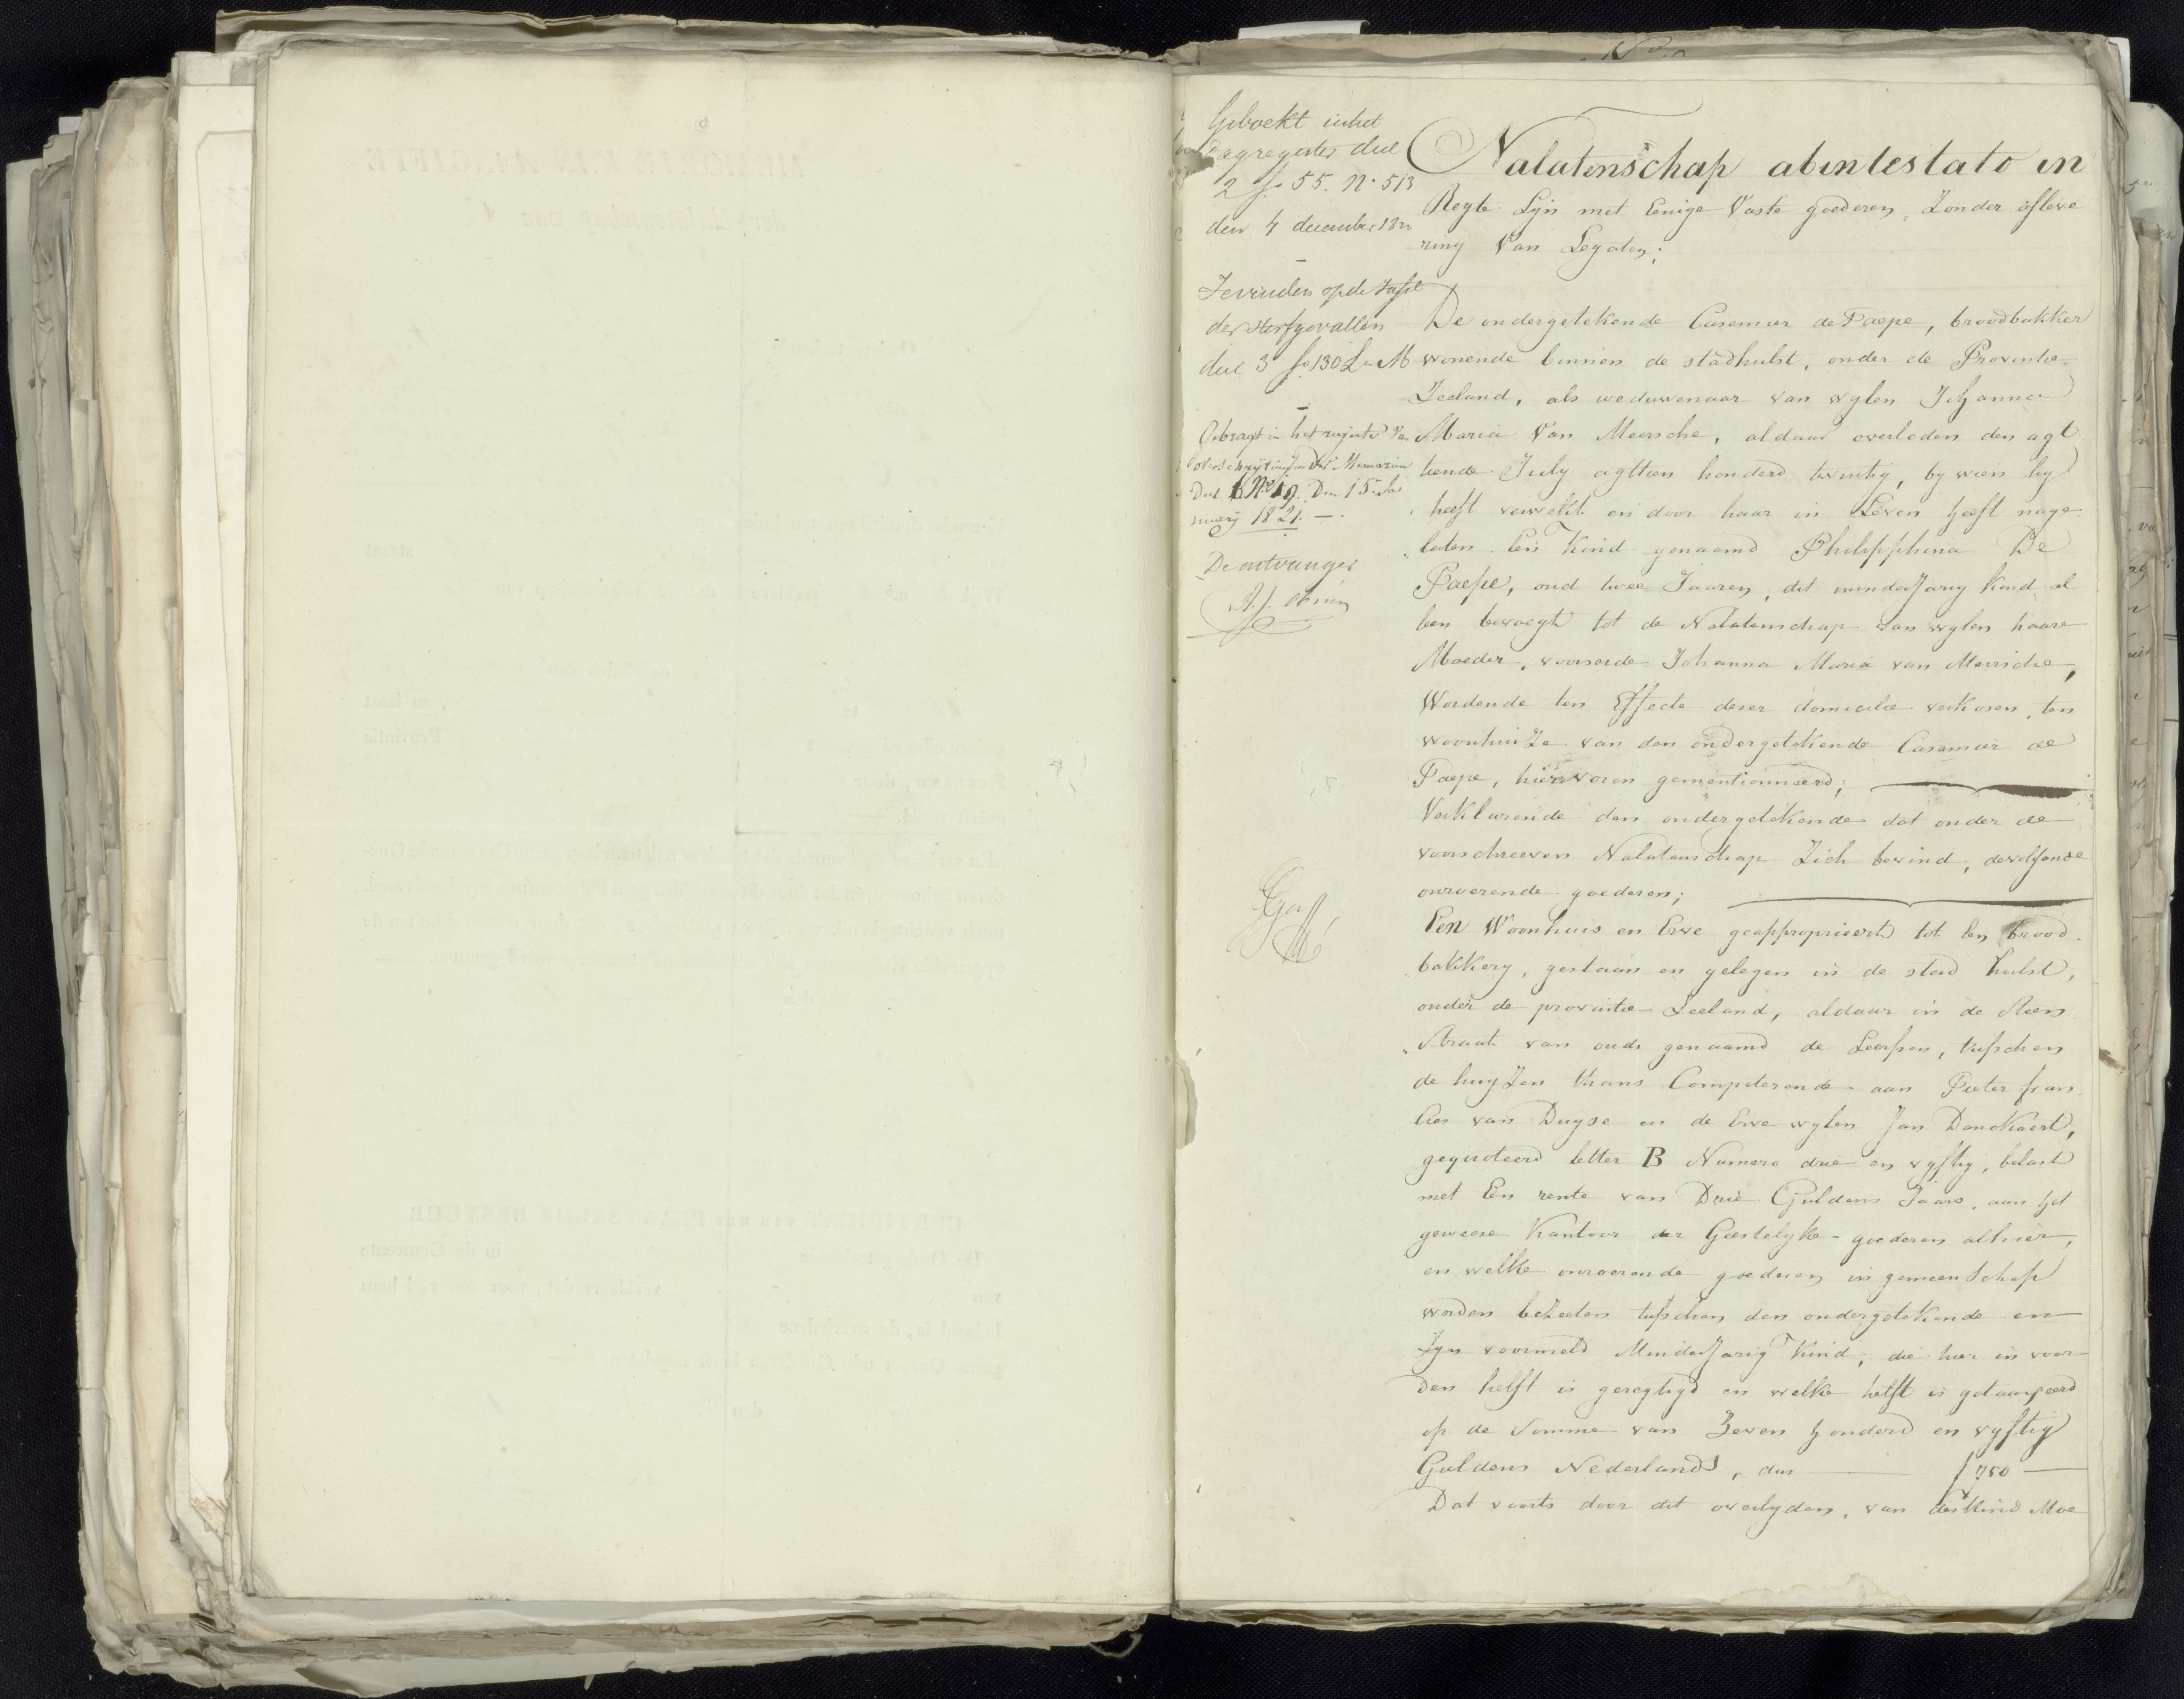 Geboekt in het
dagregister deel
2 fo 55. No 513
den 4 december 1820
Te vinden op de tafel
der sterfgevallen
deel 3 fo 130 La M
Gebragt in het register van
overschryving der Memorien
Deel No 19. Den 15 Ja
nuary 1821. —
De ontvanger
Nalatenschap abintestato in
Regte Lyn met Eenige Vaste goederen, Zonder afleve
ring Van Legaten;
De ondergetekende Casemier de Paepe, broodbakker
wonende binnen de stad hulst, onder de Provintie
Zeeland, als weduwenaar van wylen Johanna
Maria Van Meersche, aldaar overleden den agt
tiende July agttien honderd twintig, by wien hy
heeft verwekt en door haar in Leven heeft nage
laten Een Kind genaamd Philipphina De
Paepe, oud twee Jaaren, dit minderjarig Kind al
leen bevoegt tot de Nalatenschap van wylen haare
Moeder, voornoemde Johanna Maria van Meersche,
Wordende ten Effecte deser domicilie verkosen, ten
woonhuize van den ondergetekende Casemier de
Paepe, hiervoren gementionneerd;
Verklarende den ondergetekende dat onder de
voorschreeven Nalatenschap Zich bevind, de volgende
onroerende goederen;
Een Woonhuis en Erve geapproprieert tot een brood
bakkery, gestaan en gelegen in de stad hulst,
onder de provintie Zeeland, aldaar in de Steen
straat van ouds genaamd de Leerssen, tusschen
de huyzen thans Competerende aan Pieter fran
cies van Duyse en de Erve wylen Jan Danckaert,
gequoteerd letter B Numero drie en vyftig, belast
met Een rente van Drie Guldens Jaars, aan het
geweese Kantoor der Geestelyke goederen alhier,
en welke onroerende goederen in gemeenschap
worden bezeeten tusschen den ondergetekende en
Zyn voormeld Minderjarig Kind, die hier in voor
Den helft is geregtigd en welke helft is getaxeerd
op de Somme van Zeven honderd en vyftig
Guldens Nederlands, dus — f 750 —
Dat voorts door dit overlyden, van des Kind Moe